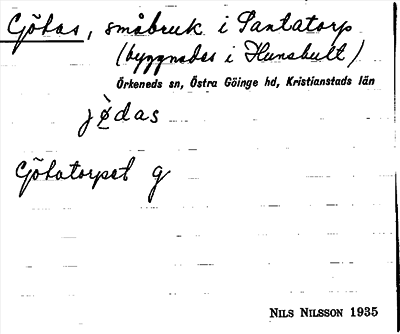 Götas, småbruk i Tantatorp
(byggnades i Hunshult)
Örkeneds sn, Östra Göinge hd, Kristianstads län
jø̀das
Götatorpet g
NILS NILSSON 1935